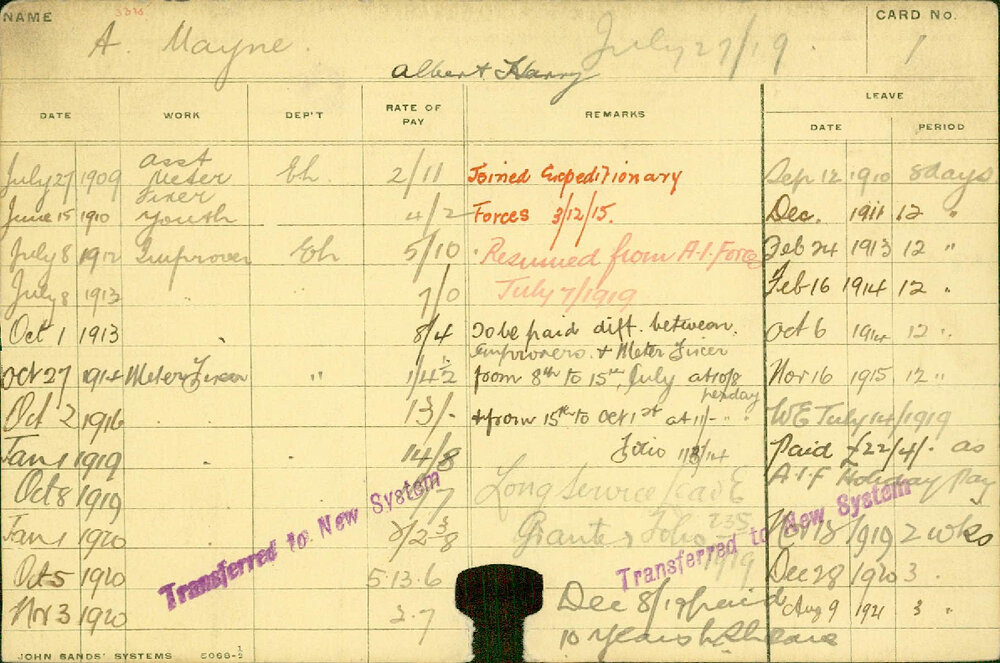 NAME
A. Mayne.
July 27/19.
CARD No.
1
Albert Harry
DATE WORK DEP'T RATE OF PAY REMARKS LEAVE
DATE PERIOD
July 27 1909 Asst Meter Fixer Eh. 2/11 Joined Expeditionary Sep 12 1910 8 days
June 15 1910 Youth 4/2 Forces 3/12/15. Dec. 1911 12 "
July 8 1912 Improver Eh 5/10 Resumed from A.I. Force Feb 24 1913 12 "
July 8 1913 7/0 July 7/1919 Feb 16 1914 12 "
Oct 1 1913 8/4 To be paid diff. between Oct 6 1914 12 "
Improvers + Meter Fixer
Oct 27 1914 Meter Fixer " from 8th to 15th July at 10/8 per day Nov 16 1915 12 "
Oct 2 1916 13/- + from 15th to Oct 1st at 11/- " " WE July 14/1919
Jan 1 1919 14/8 Folio Paid £22/4/- as
Oct 8 1919 Long Service A.I.F Holiday Pay
Jan 1920 Granted Folio 235 Nov 13 1919 2 wks
1919
Oct 5 1920 5.13.6 Dec 28 1920 3 "
Nov 3 1920 3.7 Dec 8/19 paid Aug 9 1921 3 "
10 years
Transferred to New System
Transferred to New System
JOHN SANDS' SYSTEMS 5068-½